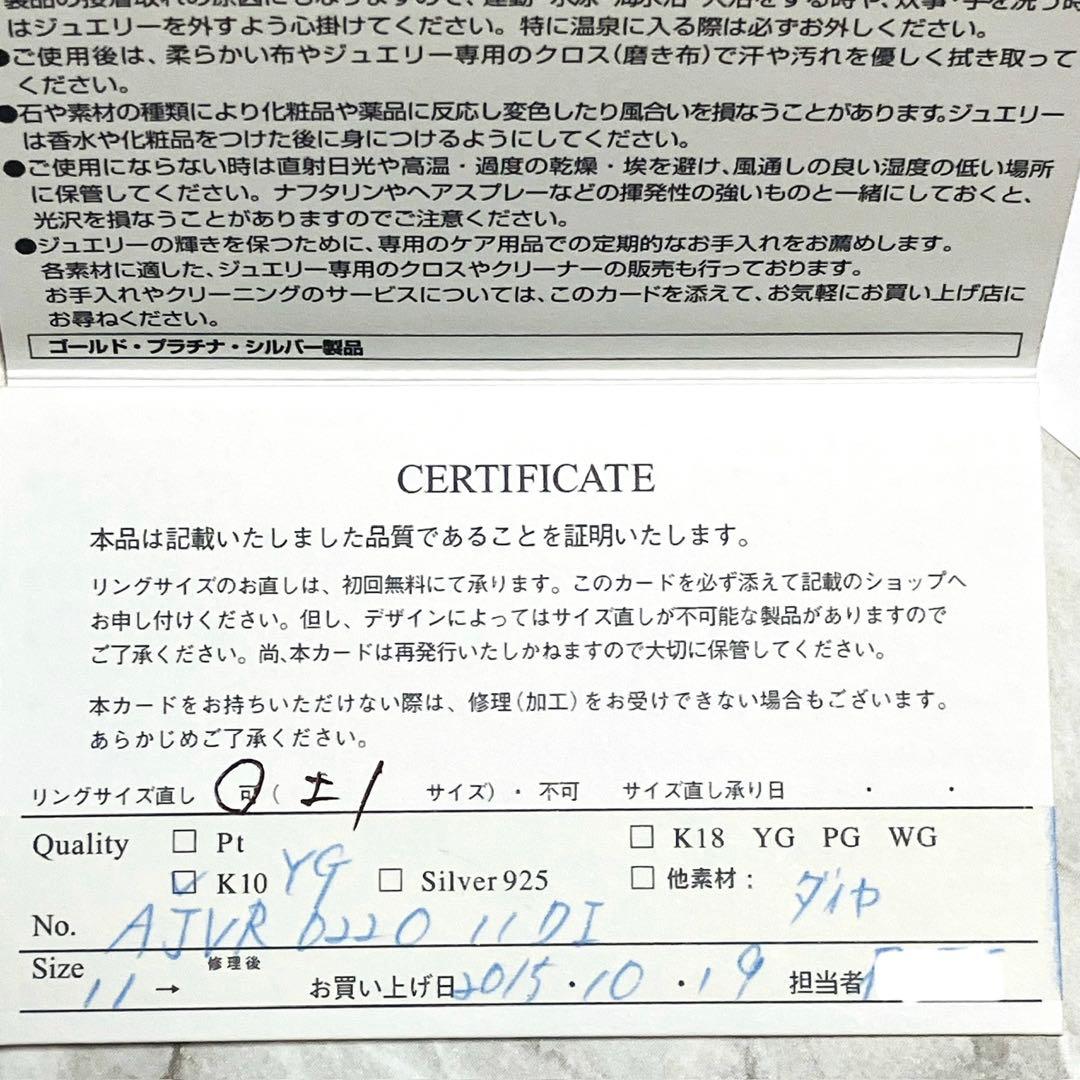 製品の接着取れの原因にもなりますので、運動・水泳・海水浴・入浴をする時や、炊事・手を洗う時
はジュエリーを外すよう心掛けてください。特に温泉に入る際は必ずお外しください。
●ご使用後は、柔らかい布やジュエリー専用のクロス(磨き布)で汗や汚れを優しく拭き取って
ください。
●石や素材の種類により化粧品や薬品に反応し変色したり風合いを損なうことがあります。ジュエリー
は香水や化粧品をつけた後に身につけるようにしてください。
●ご使用にならない時は直射日光や高温・過度の乾燥・埃を避け、風通しの良い湿度の低い場所
に保管してください。ナフタリンやヘアスプレーなどの揮発性の強いものと一緒にしておくと、
光沢を損なうことがありますのでご注意ください。
●ジュエリーの輝きを保つために、専用のケア用品での定期的なお手入れをお薦めします。
各素材に適した、ジュエリー専用のクロスやクリーナーの販売も行っております。
お手入れやクリーニングのサービスについては、このカードを添えて、お気軽にお買い上げ店に
お尋ねください。
ゴールド・プラチナ・シルバー製品
CERTIFICATE
本品は記載いたしました品質であることを証明いたします。
リングサイズのお直しは、初回無料にて承ります。このカードを必ず添えて記載のショップへ
お申し付けください。但し、デザインによってはサイズ直しが不可能な製品がありますので
ご了承ください。尚、本カードは再発行いたしかねますので大切に保管してください。
本カードをお持ちいただけない際は、修理(加工)をお受けできない場合もございます。
あらかじめご了承ください。
リングサイズ直し 可 ( ±1 サイズ)・不可 サイズ直し承り日 ・ ・
Quality □ Pt □ K18 YG PG WG
☑ K10 YG □ Silver 925 □ 他素材: ダイヤ
No. AJVR 0220 11 DI
Size 11 → 修理後 お買い上げ日 2015・10・19 担当者